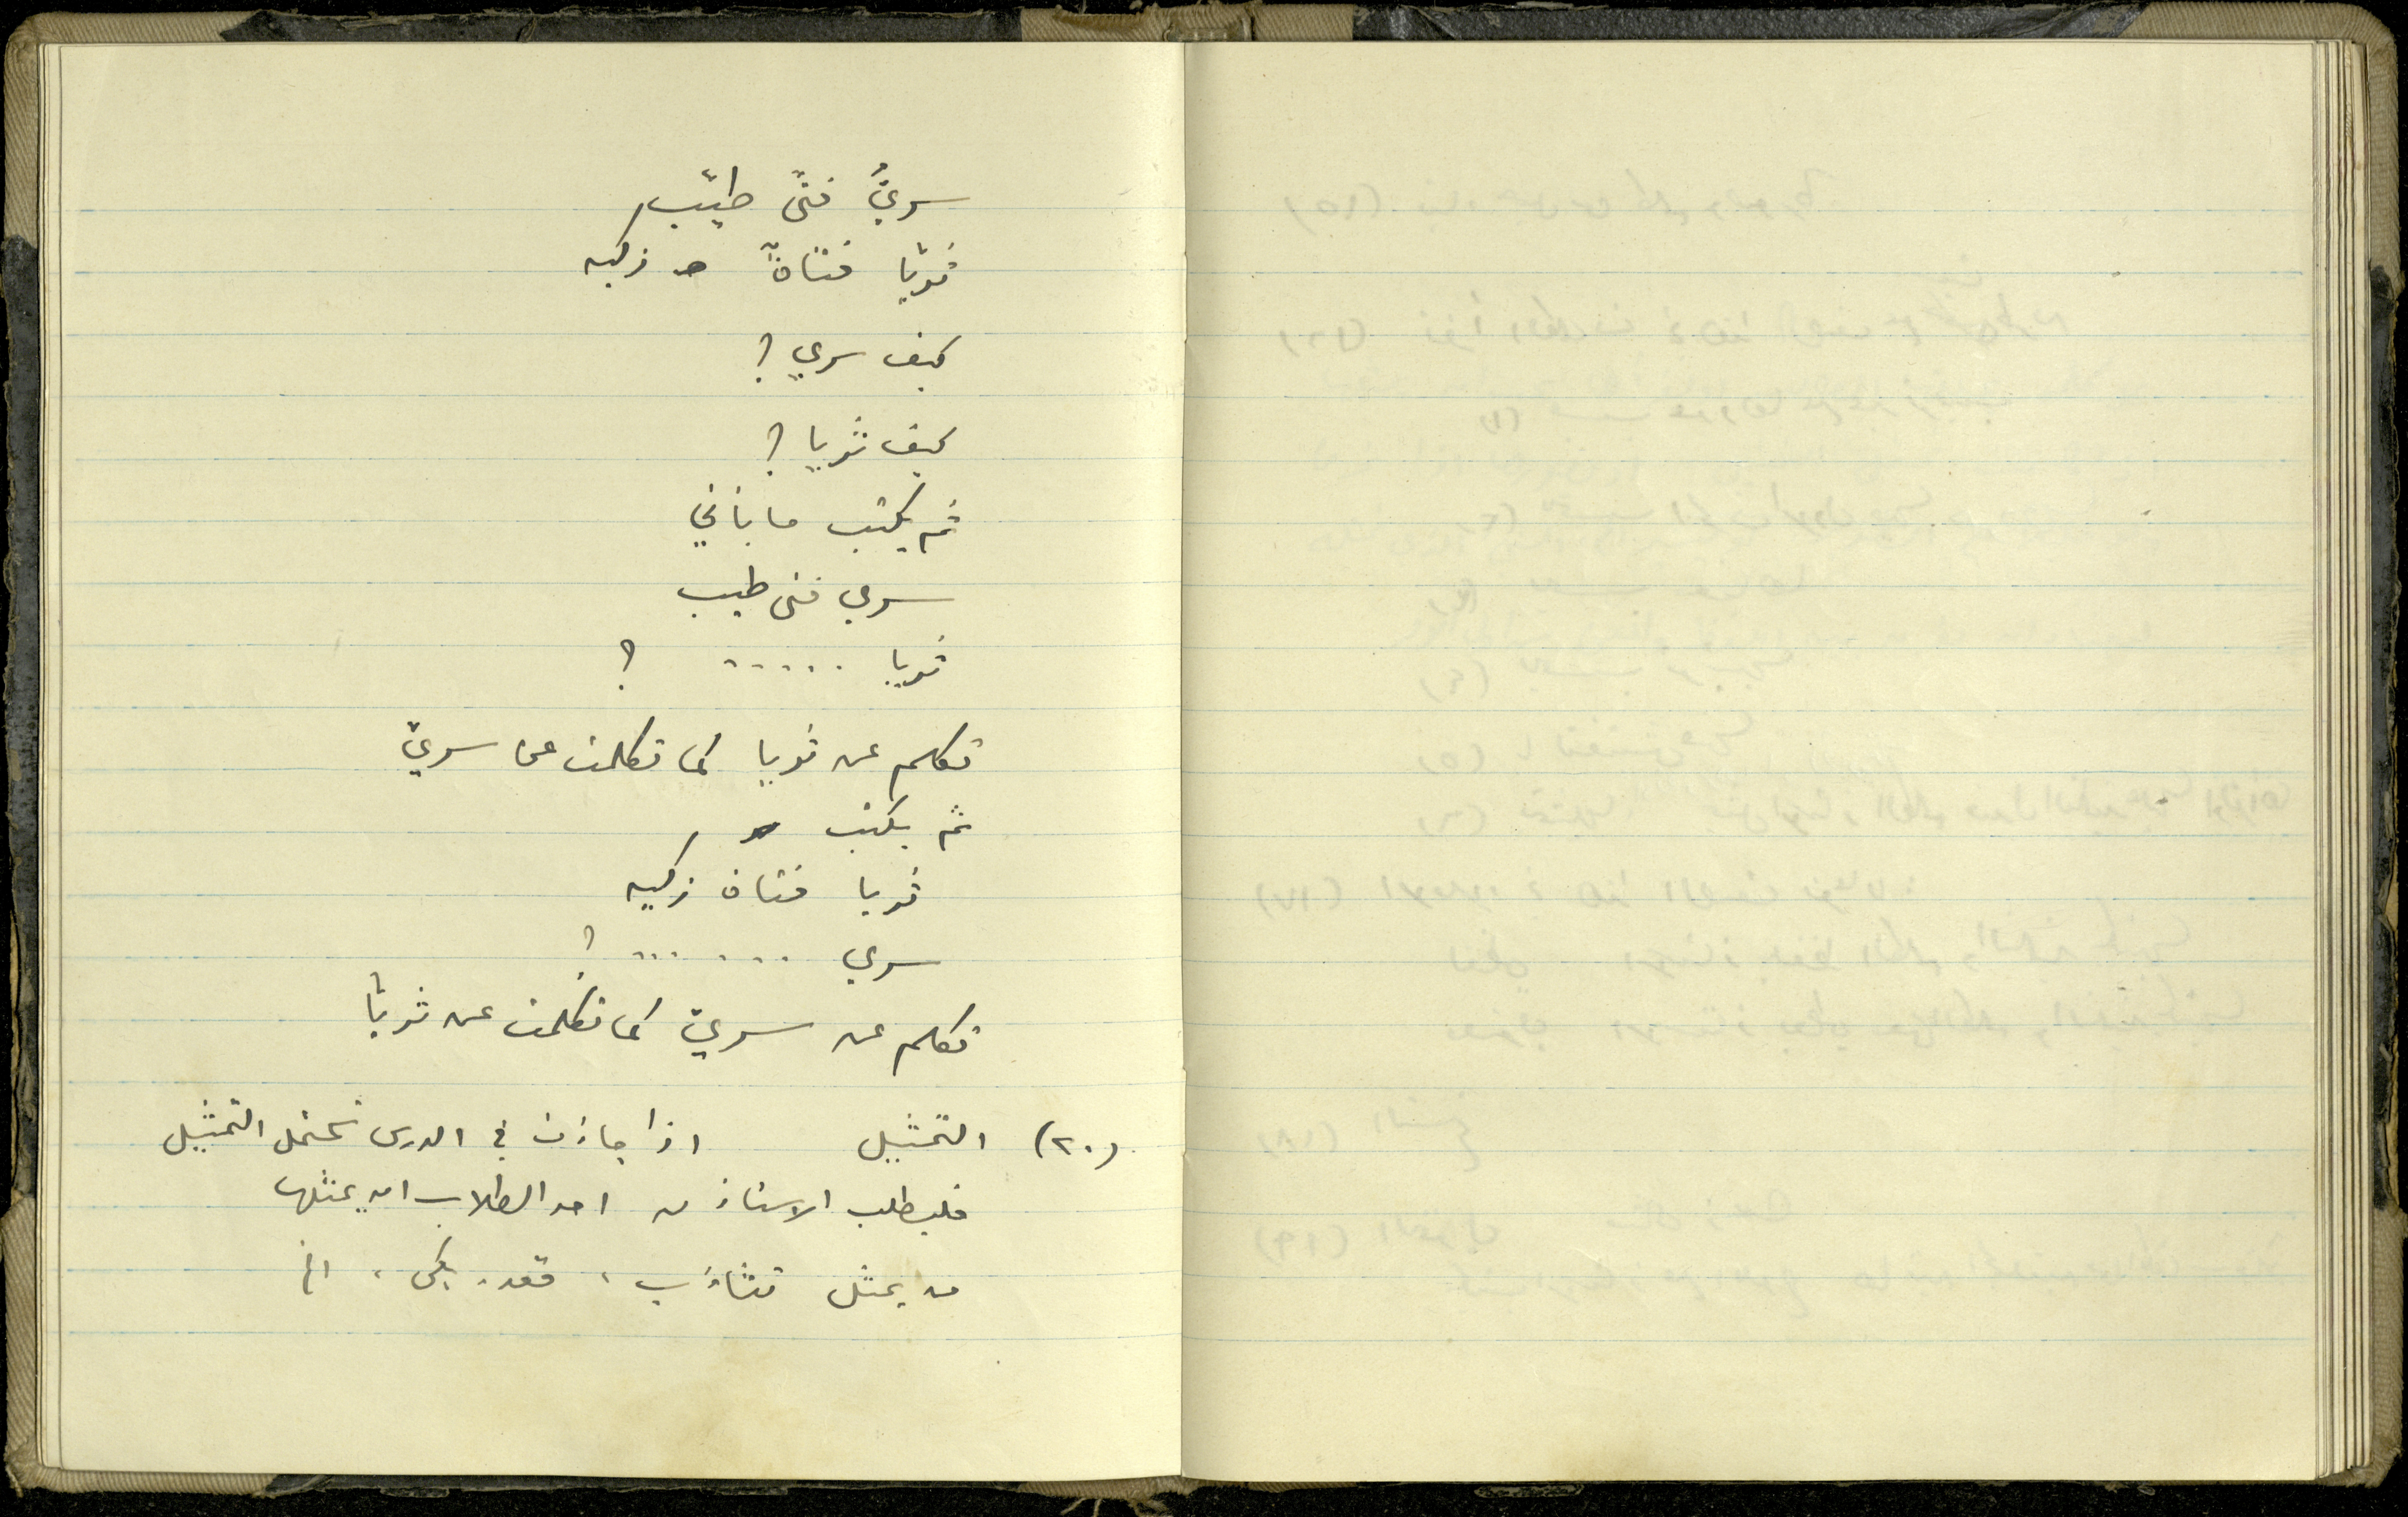 سريٌّ فتًى طيّب
ثريّا فتاةٌ زكيه
كيف سري ؟
كيف ثريا ؟
ثم يكتب ما يأتي
سري فتى طيب
ثريا ..... ؟
تكلم عن ثريا كما تكلمت عن سريّ
ثم يكتب
ثريا فتاة زكيه
سري ...... ؟
تكلم عن سريّ كما تكلمت عن ثريّا
(٢٠) التمثيل اذا جاءت في الدرس تحتمل التمثيل
فليطلب الاستاذ من احد الطلاب ان يمثلها
من يمثل تثاءَب ، قعد ، بكى ، الخ